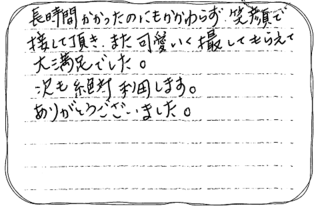 長時間かかったのにもかかわらず、笑顔で
接して頂き、また可愛いく撮してもらえて
大満足でした。
次も絶対利用します。
ありがとうございました。